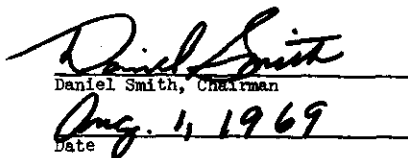 Daniel Smith
Daniel Smith, Chairman
Aug. 1, 1969
Date